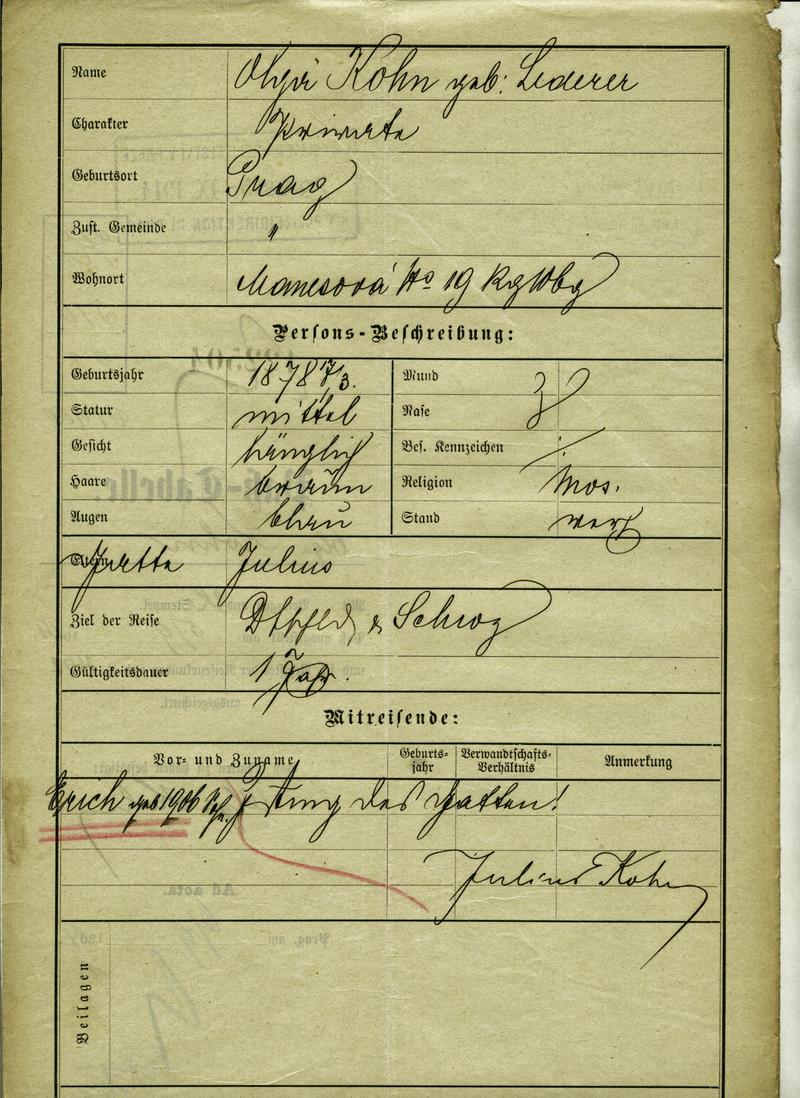 Name Olga Kohn geb: Lederer
Charakter Private
Geburtsort Prag
Zust. Gemeinde "
Wohnort Manesová No 19 KglWbg
Persons-Beschreibung:
Geburtsjahr 1878 7/3. Mund
Statur mittel Nase
Gesicht länglich Bes. Kennzeichen
Haare braun Religion mos.
Augen blau Stand verh
Gatte Julius
Ziel der Reise Dtschld & Schwg
Gültigkeitsdauer 1 Jahr.
Mitreisende:
Vor- und Zuname Geburts-jahr Verwandtschafts-Verhältnis Anmerkung
Erich geb 1906 des Gatten!
Julius Kohn
Beilagen